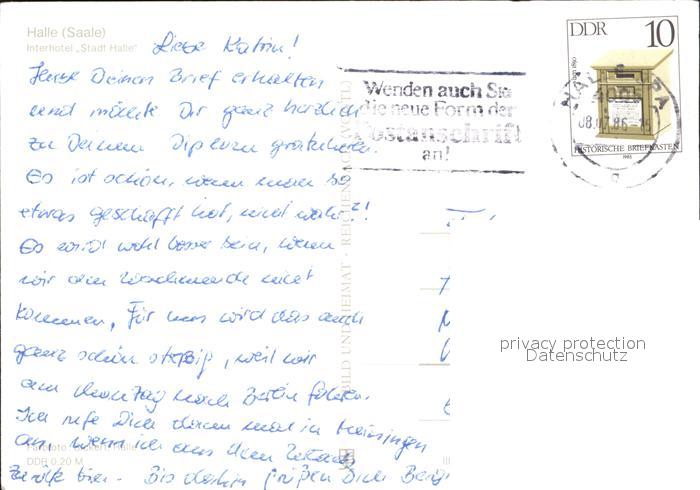 Halle (Saale)
Interhotel „Stadt Halle"
Liebe Katrin!
Habe Deinen Brief erhalten
und möchte Dir ganz herzlich
zu Deinem Diplom gratulieren.
Es ist schön, wenn man so
etwas geschafft hat, nicht wahr?!
Es wird wohl besser sein, wenn
wir am Wochenende nicht
kommen, Für uns wird das auch
ganz schön stressig, weil wir
am Montag nach Berlin fahren.
Ich rufe Dich dann mal in Meiningen
an, wenn ich aus dem Urlaub
zurück bin. Bis dahin grüßen Dich
Farbfoto:
DDR 0,20 M
BILD UND HEIMAT · REICHENBACH (VOGTL)
Wenden auch Sie
die neue Form der
Postanschrift
an!
DDR 10
08.07.86
HISTORISCHE BRIEFKASTEN
1985
privacy protection
Datenschutz